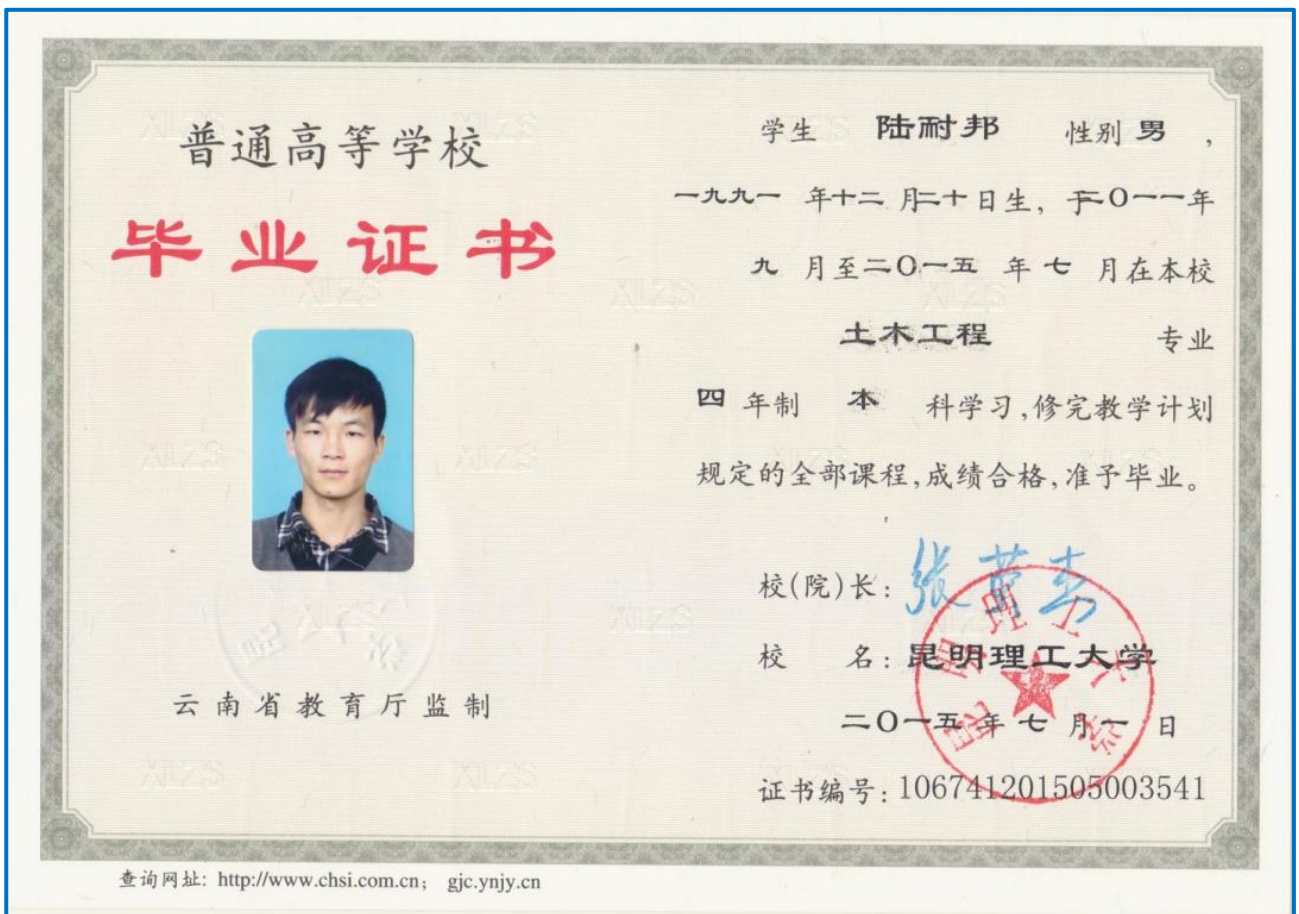 普通高等学校
毕业证书
云南省教育厅监制
学生 陆耐邦 性别 男，
一九九一 年十二月二十日生，于二〇一一年
九 月至二〇一五 年 七 月在本校
土木工程 专业
四 年制 本 科学习，修完教学计划
规定的全部课程，成绩合格，准予毕业。
校(院)长：
校 名：昆明理工大学
二〇一五 年 七 月 一 日
证书编号：106741201505003541
昆明理工大学
查询网址: http://www.chsi.com.cn; gjc.ynjy.cn
XLZS